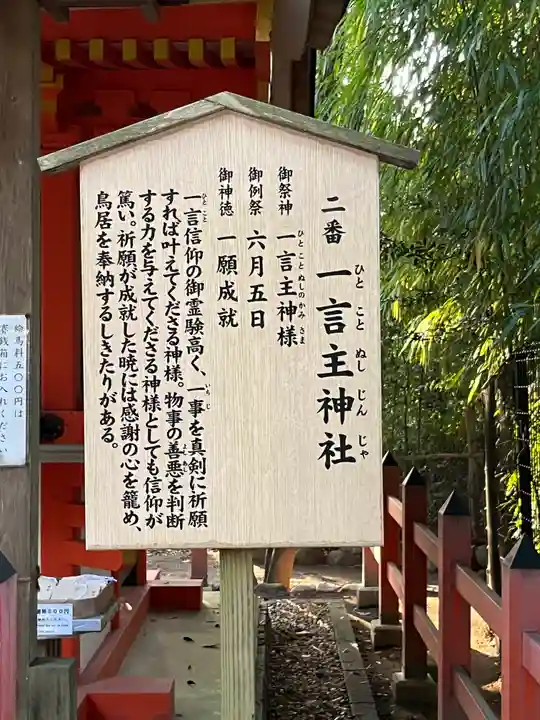 二番 一言主神社
ひとことぬしじんじゃ
御祭神 一言主神様
ひとことぬしのかみさま
御例祭 六月五日
御神徳 一願成就
一言信仰の御霊験高く、一事を真剣に祈願
ひとこと
いちじ
すれば叶えてくださる神様。物事の善悪を判断
よしあし
する力を与えてくださる神様としても信仰が
篤い。祈願が成就した暁には感謝の心を籠め、
鳥居を奉納するしきたりがある。
絵馬料五〇〇円は
賽銭箱にお入れください